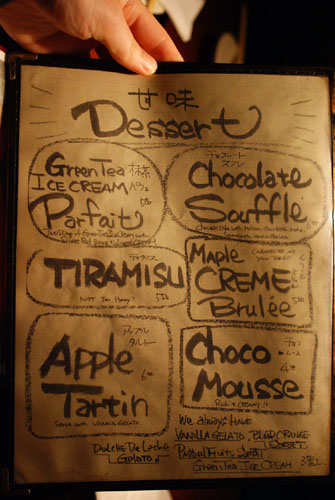 甘味
Dessert
Green Tea 抹茶
ICE CREAM パフェ
Parfait
チョコレート
スフレ
Chocolate
Souffle
ティラミス
TIRAMISU
NOT TOO Heavy!
Maple
CREME
Brulée
アップル
タルト
Apple
Tartin
Serve with VANILLA GELATO
チョコ
ムース
Choco
Mousse
Rich & Creamy!!
Dolche De Leche
Gelato
We always have
VANILLA GELATO, BLOOD ORANGE
SORBET
Passion Fruits Sorbet
Green tea ICE CREAM